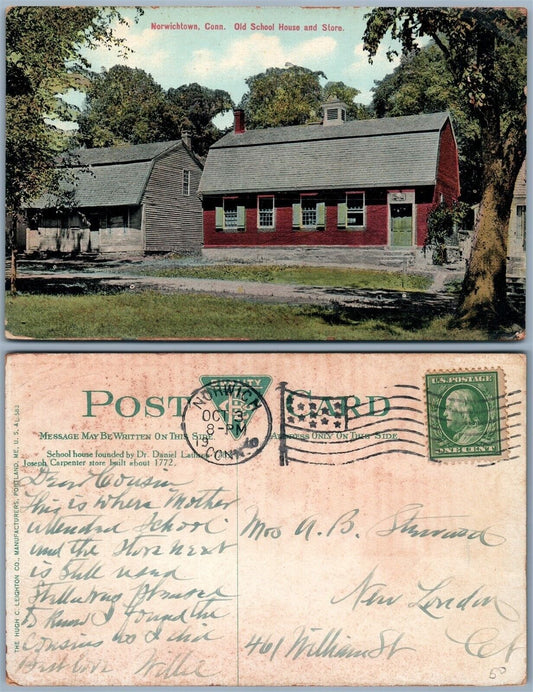 Norwichtown, Conn. Old School House and Store.
POST CARD
MESSAGE MAY BE WRITTEN ON THIS SIDE
ADDRESS ONLY ON THIS SIDE
School house founded by Dr. Daniel
Joseph Carpenter store built about 1772.
NORWICH
OCT 3
8-PM
19
CONN.
U.S. POSTAGE
ONE CENT
THE HUGH C. LEIGHTON CO., MANUFACTURERS, PORTLAND, ME., U.S.A.
Dear Cousin
this is where Mother
attended School
and the store next
is still used
to know I found the
Cousins as I did
Best love Willie
Mrs A. B. Steward
New London
461 William St Ct
50